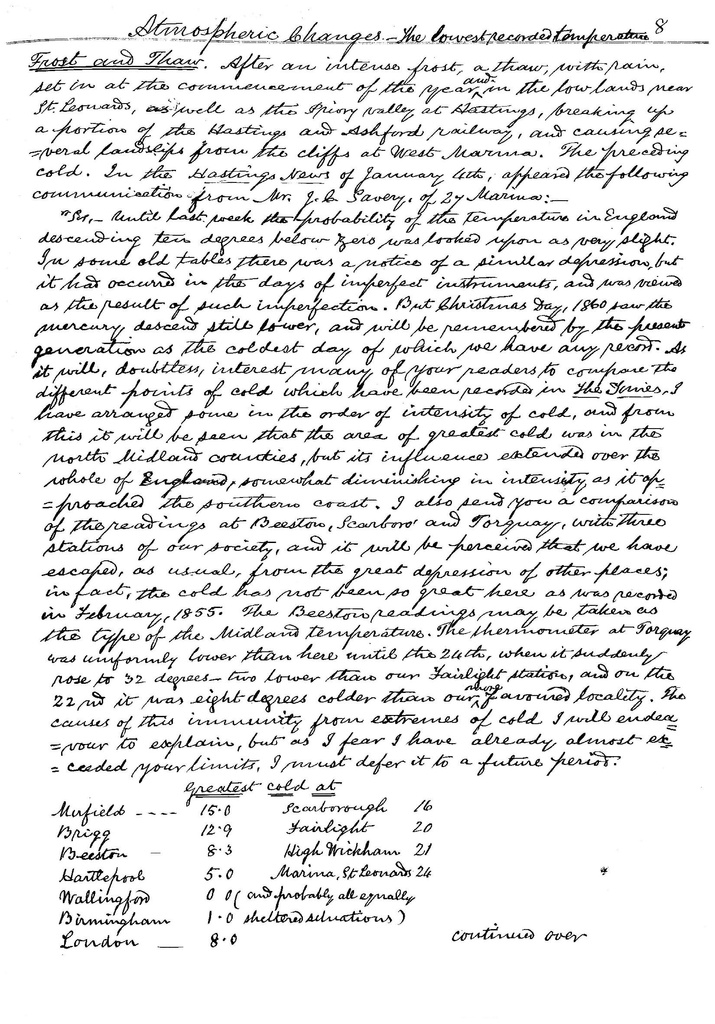 Atmospheric Changes. - The lowest recorded temperature 8
Frost and Thaw. After an intense frost, a thaw, with rain,
set in at the commencement of the year and in the low lands near
St. Leonards, as well as the Priory valley at Hastings, breaking up
a portion of the Hastings and Ashford railway, and causing se=
=veral landslips from the cliffs at West Marina. The preceding
cold. In the Hastings News of January 4th, appeared the following
communication from Mr. J. C. Savery, of 27 Marina:-
"Sir, - Until last week the probability of the temperature in England
descending ten degrees below zero was looked upon as very slight.
In some old tables there was a notice of a similar depression, but
it had occurred in the days of imperfect instruments, and was viewed
as the result of such imperfection. But Christmas Day, 1860 saw the
mercury descend still lower, and will be remembered by the present
generation as the coldest day of which we have any record. As
it will, doubtless, interest many of your readers to compare the
different points of cold which have been recorded in The Times, I
have arranged some in the order of intensity of cold, and from
this it will be seen that the area of greatest cold was in the
north Midland counties, but its influence extended over the
whole of England, somewhat diminishing in intensity as it ap=
=proached the southern coast. I also send you a comparison
of the readings at Beeston, Scarboro' and Torquay, with three
stations of our society, and it will be perceived that we have
escaped, as usual, from the great depression of other places;
in fact, the cold has not been so great here as was recorded
in February, 1855. The Beeston readings may be taken as
the type of the Midland temperature. The thermometer at Torquay
was uniformly lower than here until the 24th, when it suddenly
rose to 32 degrees - two lower than our Fairlight station, and on the
22nd it was eight degrees colder than our more favoured locality. The
causes of this immunity from extremes of cold I will endea=
=vour to explain, but as I fear I have already almost ex=
=ceeded your limits, I must defer it to a future period.
Greatest cold at
Mirfield ---- 15.0 Scarborough 16
Brigg 12.9 Fairlight 20
Beeston - 8.3 High Wickham 21
Hartlepool 5.0 Marina, St Leonards 24
Wallingford 0 0 (and probably all equally
Birmingham 1.0 sheltered situations)
London - 8.0 continued over